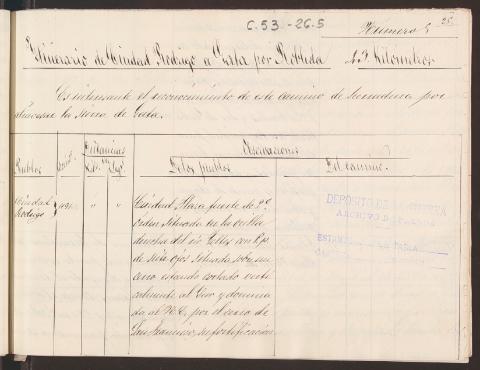 C.53-26.5
Número 5
26
Itinerario de Ciudad Rodrigo a Gata por Robleda 43 Kilometros
Es interesante el reconocimiento de este camino de herradura por
atravesar la Sierra de Gata.
Pueblos
Distancias en
Observaciones
De los pueblos.
Del camino.
Ciudad
Rodrigo
" "
Ciudad Plaza fuerte de 2º
orden situada en la orilla
derecha del rio
de siete ojos situada sobre un
cerro estando cortado verti
calmente al Oeso y domina
da al N.E. por el cerro de
San Francisco, su fortificacion
DEPÓSITO DE LA GUERRA
ARCHIVO DE